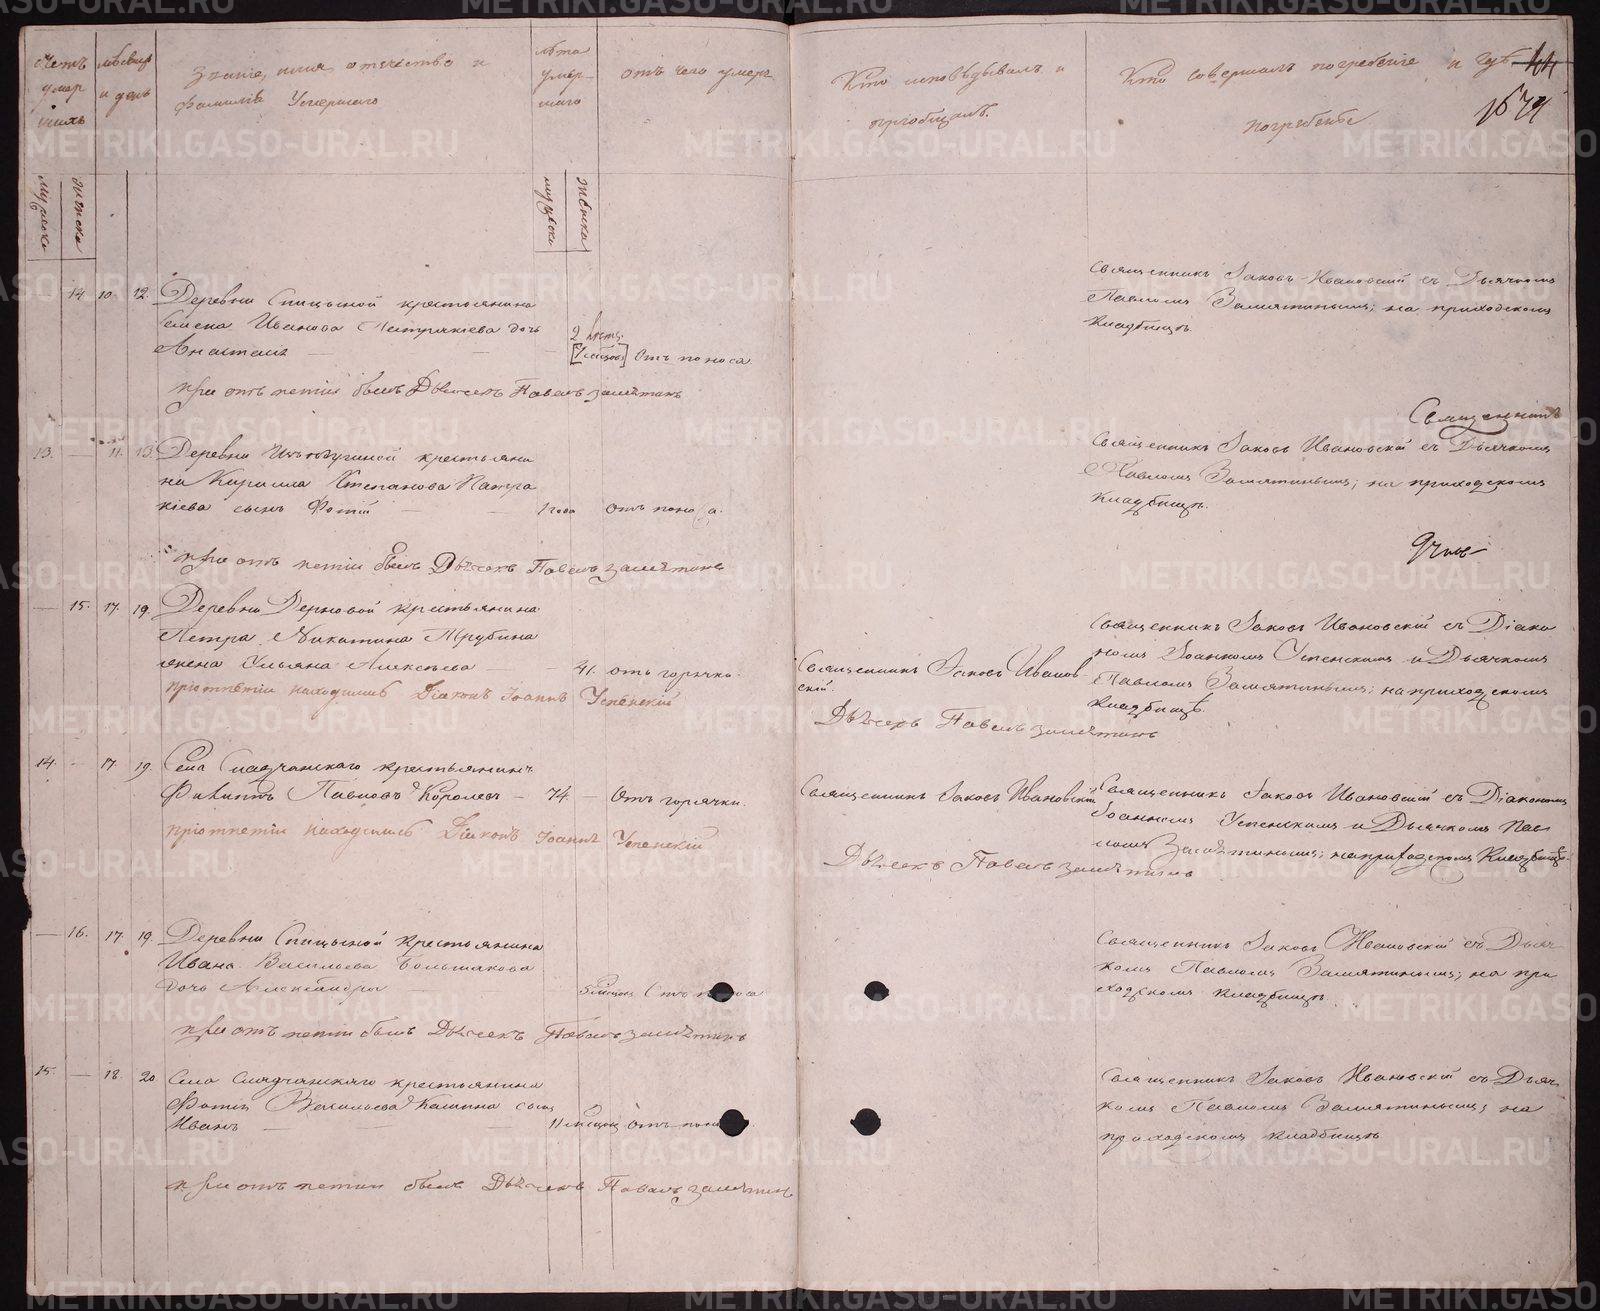 Счетъ умер шихъ
Мѣсяцъ и день
Званіе, имя отечество и
фамилія Умершаго
лѣта умер- шаго
отъ чего умеръ
Кто исповѣдывалъ и
пріобщалъ.
Кто совершалъ погребеніе и гдѣ
погребенъ
44
1674
мужеска
женска
мужеска
женска
14. 10. 12. Деревни Спицыной крестьянина
Семена Иванова Патракіева дочь
Анастасія
2 лѣтъ
отъ поноса
Священникъ Іаковъ Ивановскій съ Дьячкомъ
Павломъ Замятинымъ; на приходскомъ
кладбищѣ.
при отъ петіи былъ Дьячекъ Павелъ замятинъ
Священникъ
13. — 11. 13. Деревни крестьяни
на Кирилла Степанова Патра
кіева сынъ Фотій
1 года отъ поноса.
Священникъ Іаковъ Ивановскій съ Дьячкомъ
Павломъ Замятинымъ; на приходскомъ
кладбищѣ.
при отъ петіи былъ Дьячекъ Павелъ замятинъ
— 15. 17. 19. Деревни Дерновой крестьянина
Петра Никитина Трубина
жена Ульяна Алексѣева
41. отъ горячки.
Священникъ Іаковъ Иванов
скій.
Священникъ Іаковъ Ивановскій съ Діако
номъ Іоанномъ Успенскимъ и Дьячкомъ
Павломъ Замятинымъ; на приходскомъ
кладбищѣ.
приотпѣтіи находился Діаконъ Іоаннъ Успенскій
Дьячекъ Павелъ замятинъ
14. — 17. 19. Села Смолчанскаго крестьянинъ
Филиппъ Павловъ Королевъ — 74. — Отъ горячки.
Священникъ Іаковъ Ивановскій
Священникъ Іаковъ Ивановскій съ Діакономъ
Іоанномъ Успенскимъ и Дьячкомъ Пав
ломъ Замятинымъ; на приходскомъ Кладбищѣ.
приотпетіи находился Діаконъ Іоаннъ Успенскій
Дьячекъ Павелъ замятинъ
— 16. 17. 19. Деревни Спицыной крестьянина
Ивана Васильева Большакова
дочь Александра
5 мѣсяц. Отъ поноса
Священникъ Іаковъ Ивановскій съ Дьяч
комъ Павломъ Замятинымъ; на при
ходскомъ кладбищѣ.
при отъ петіи былъ Дьячекъ Павелъ замятинъ
15. — 18. 20. Села крестьянина
Васильева Калинина сынъ
Иванъ
11 мѣсяц. отъ поно
Священникъ Іаковъ Ивановскій съ Дьяч
комъ Павломъ Замятинымъ; на
приходскомъ кладбищѣ
при отъ петіи былъ Дьячекъ Павелъ замятинъ
METRIKI.GASO-URAL.RU